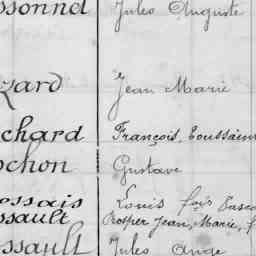 ssonnet Jules Auguste
zard Jean Marie
chard François, Toussaint
ochon Gustave
ossais Louis
ssault Prosper Jean, Marie, f
ssault Jules Ange